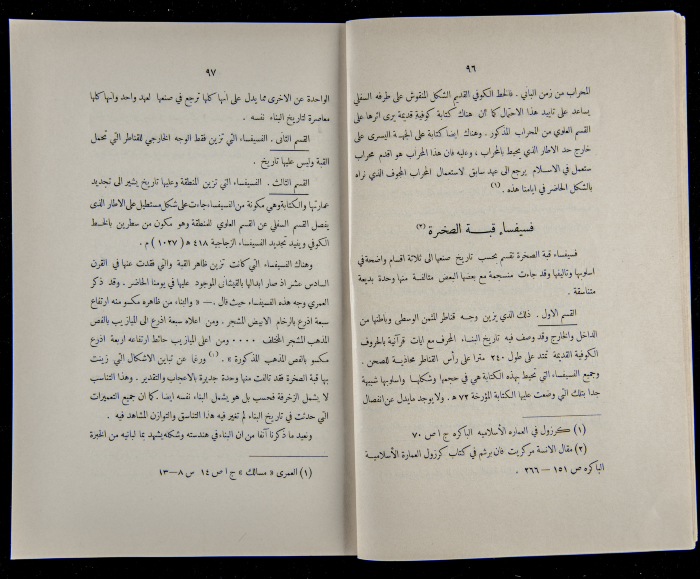 ٩٦
المحراب من زمن الباني . فالخط الكوفي القديم الشكل المنقوش على طرفه السفلي
يساعد على تاييد هذا الاحتمال كما ان هناك كتابة كوفية قديمة يرى اثرها على
القسم العلوي من المحراب المذكور . وهناك ايضا كتابة على الجهة اليسرى على
خارج حد الاطار الذي يحيط بالمحراب ، وعليه فان هذا المحراب هو اقدم محراب
ستعمل في الاسلام يرجع الى عهد سابق لاستعمال المحراب المجوف الذي نراه
بالشكل الحاضر في ايامنا هذه . (١)
فسيفساء قبة الصخرة (٢)
فسيفساء قبة الصخرة تقسم بحسب تاريخ صنعها الى ثلاثة اقسام واضحة في
اسلوبها وتاليفها وقد جاءت منسجمة مع بعضها البعض متالفة منها وحدة بديعة
متناسقة .
القسم الاول . ذلك الذي يزين وجه قناطر المثمن الوسطى وباطنها من
الداخل والخارج وقد وصف فيه تاريخ البناء المحرف مع ايات قرآنية بالحروف
الكوفية القديمة تمتد على طول ٢٤٠ مترا على رأس القناطر محاذية للصحن .
وجميع الفسيفساء التي تحيط بهذه الكتابة هي في حجمها وشكلها واسلوبها شبيهة
جدا بتلك التي وضعت عليها الكتابة المؤرخة ٧٢ ه . ولا يوجد مايدل عن انفصال
(١) كرزول في العماره الأسلاميه الباكره ج ١ ص ٧٠
(٢) مقال الانسة مركريت فان برشم في كتاب كرزول العمارة الأسلاميـة
الباكره ص ١٥١ — ٢٦٦ .
٩٧
الواحدة عن الاخرى مما يدل على انها كلها ترجع في صنعها لعهد واحد وانها كلها
معاصرة لتاريخ البناء نفسه .
القسم الثانى . الفسيفساء التي تزين فقط الوجه الخارجي للقناطر التي تحمل
القبة وليس عليها تاريخ .
القسم الثالث . الفسيفساء التي تزين المنطقة وعليها تاريخ يشير الى تجديد
عمارتها والكتابة وهي مكونة من الفسيفساء جاءت على شكل مستطيل على الاطار الذى
يفصل القسم السفلي عن القسم العلوي للمنطقة وهو مكون من سطرين بالخط
الكوفي ويفيد تجديد الفسيفساء الزجاجية ٤١٨ ه ( ١٠٢٧ ) م .
وهناك الفسيفساء التي كانت تزين ظاهر القبة والتي فقدت عنها في القرن
السادس عشر اذ صار ابدالها بالقيشاني الموجود عليها في يومنا الحاضر . وقد ذكر
العمري وجه هذه الفسيفساء حيث قال . — « والبناء من ظاهره مكسو منه ارتفاع
سبعة اذرع بالرخام الابيض المشجر . ومن اعلاه سبعة اذرع الى المازيب بالفص
المذهب المشجر المختلف ٠٠٠٠ ومن اعلى الميازيب حائط ارتفاعه اربعة اذرع
مكسو بالفص المذهب المذكورة » . (١) ورغما عن تباين الاشكال التي زينت
بها قبة الصخرة فقد تالفت منها وحدة جديرة بالاعجاب والتقدير . وهذا التناسب
لا يشمل الزخرفة فحسب بل هو يشمل البناء نفسه ايضا . كما ان جميع التعميرات
التي حدثت في تاريخ البناء لم تغير فيه هذا التناسق والتوازن المشاهد فيه .
ونعيد ما ذكرنا آنفا من ان البناء في هندسته وشكله يشهد بما لبانيه من الخبرة
(١) العمرى « مسالك » ج ١ ص ١٤ س ٨—١٣